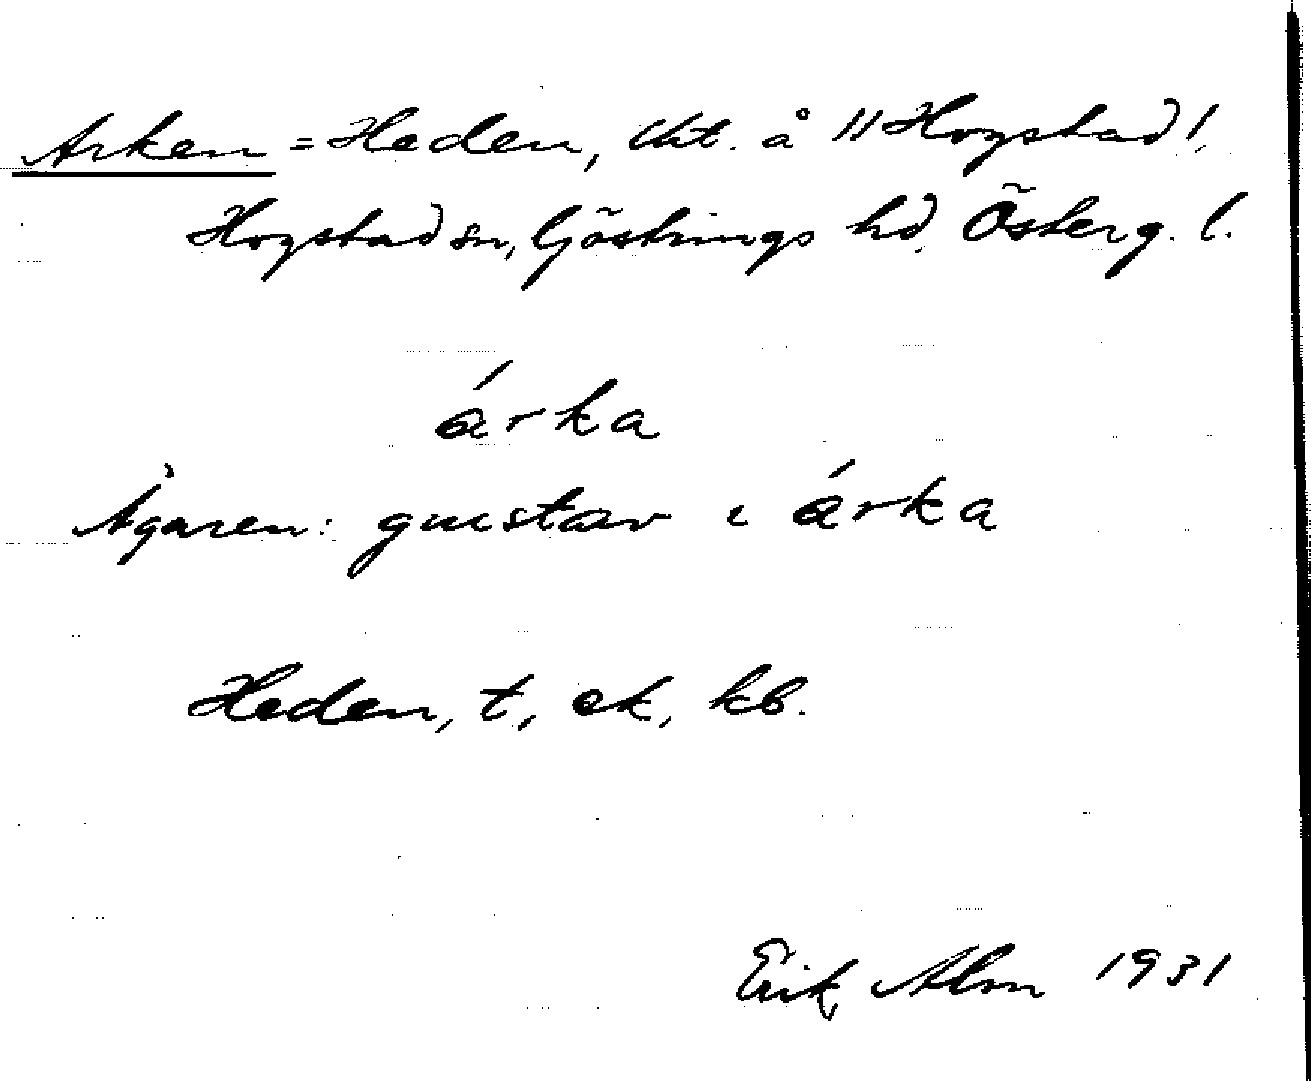 Arken = Heden, tht. å "Hogstad",
Hogstad sn, Göstrings hd, Österg. l.
árka
Ägaren: gustav i árka
Heden, t, ek, kb.
Erik Alm 1931